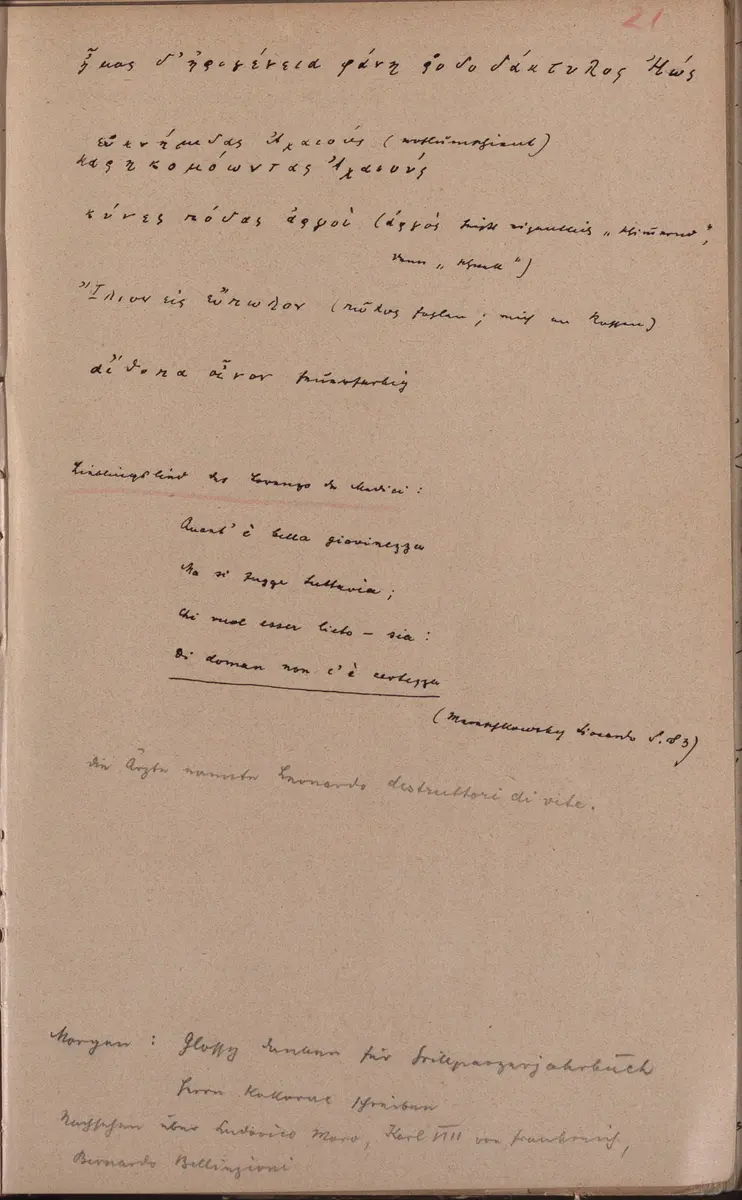 21
ἦμος δ' ἠριγένεια φάνη ῥοδοδάκτυλος Ἠώς
εὐκνήμιδας Ἀχαιούς (wohlumschient)
καρηκομόωντας Ἀχαιούς
κύνες πόδας ἀργοὶ (ἀργός heißt eigentlich „schimmernd",
dann „schnell")
Ἴλιον εἰς εὔπωλον (πῶλος Fohlen; reich an Rossen)
αἴθοπα οἶνον feuerfarbig
Lieblingslied des Lorenzo de Medici:
Quant' è bella giovinezza
Ma si fugge tuttavia;
Chi vuol esser lieto – sia:
Di doman non c'è certezza
(Mereschkowsky Lionardo S. 83)
die Ärzte nannte Leonardo destruttori di vite.
Morgen: Glossy danken für Grillparzerjahrbuch
Herrn schreiben
Nachsehen über Ludovico Moro, Karl VIII von Frankreich,
Bernardo Bellinzioni